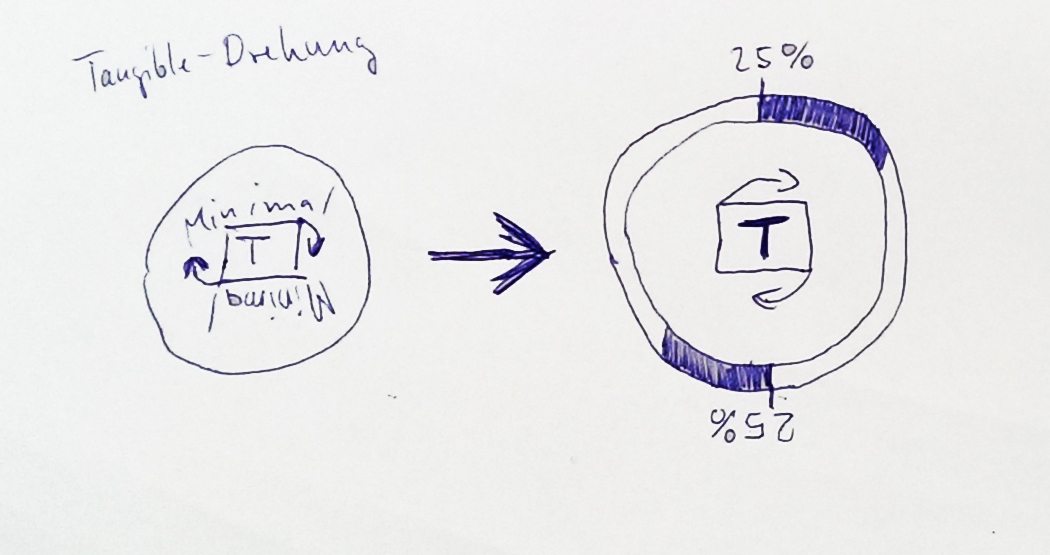 Tangible-Drehung
25%
Minimal
T
Minimal
T
25%